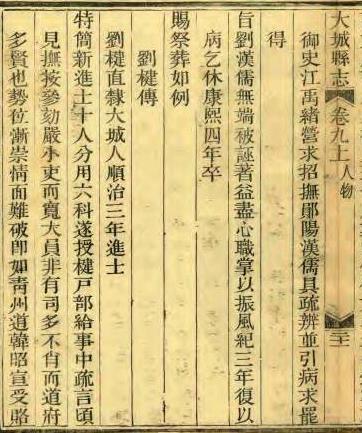 大城縣志
卷九上 人物
二十一
御史江禹緒營求招撫鄖陽漢儒具疏辨並引病求罷
得
旨劉漢儒無端被誣著益盡心職掌以振風紀三年復以
病乞休康熙四年卒
賜祭葬如例
劉楗傳
劉楗直隸大城人順治三年進士
特簡新進士十人分用六科遂授楗戸部給事中疏言頃
見撫按參劾嚴小吏而寬大員非有司多不肖而道府
多賢也勢位漸崇情面難破卽如靑州道韓昭宣受賂